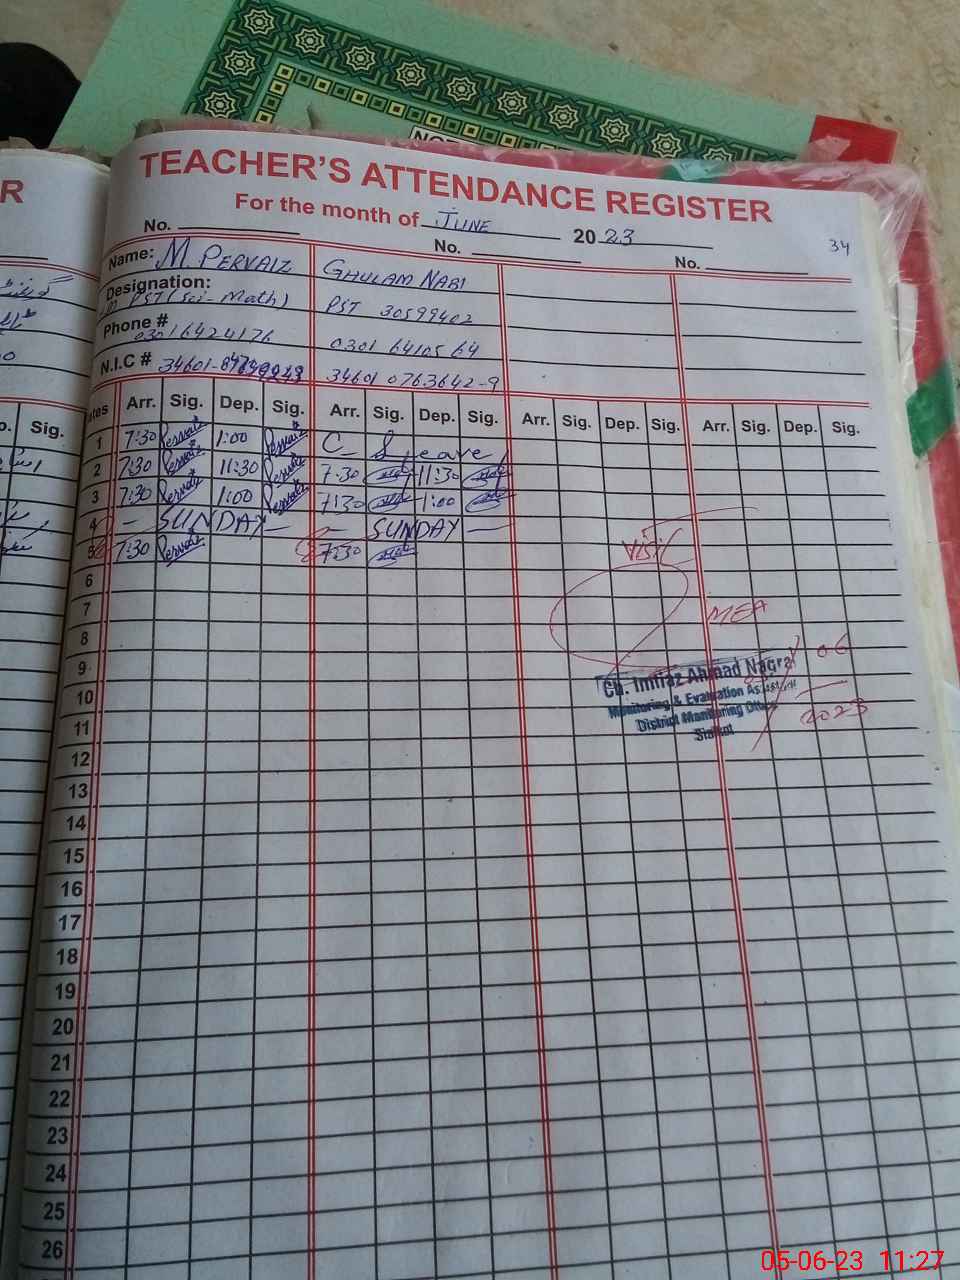 TEACHER'S ATTENDANCE REGISTER
For the month of JUNE 2023
34
No. No. No.
Name: M. PERVAIZ GHULAM NABI
Designation: PST (Sci-Math) PST 30599402
Phone # 03016424176 0301 6410564
N.I.C # 34601- 34601 0763642-9
Arr. Sig. Dep. Sig. Arr. Sig. Dep. Sig. Arr. Sig. Dep. Sig. Arr. Sig. Dep. Sig.
1 7:30 Pervaiz 1:00 Pervaiz C- Leave
2 7:30 Pervaiz 11:30 Pervaiz 7:30 11:30
3 7:30 Pervaiz 1:00 Pervaiz 7:30 1:00
4 - SUNDAY - - SUNDAY -
5 7:30 Pervaiz 7:30
6
7
8
9
10
11
12
13
14
15
16
17
18
19
20
21
22
23
24
25
26
Visit
MEA
06
2023
Ch. Imtiaz Ahmad Nagra
Monitoring & Evaluation Assistant
District Monitoring Office
Sialkot
R
Sig.
05-06-23 11:27